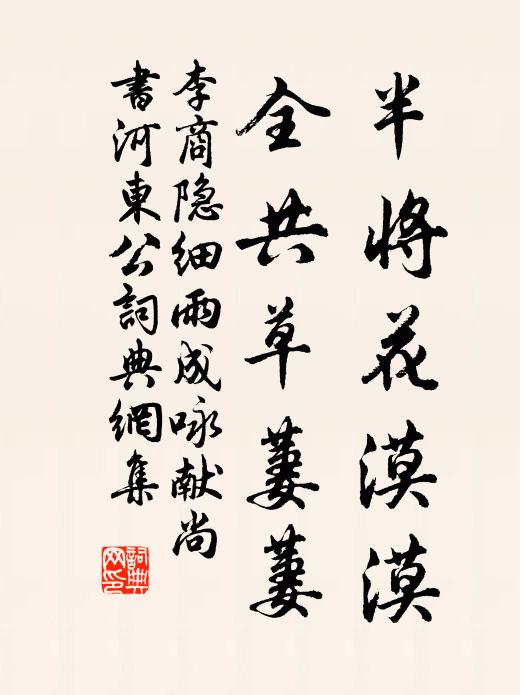 半将花漠漠
全共草萋萋
李商隐细雨成咏献尚
書河東公詞典網集
詞典网印